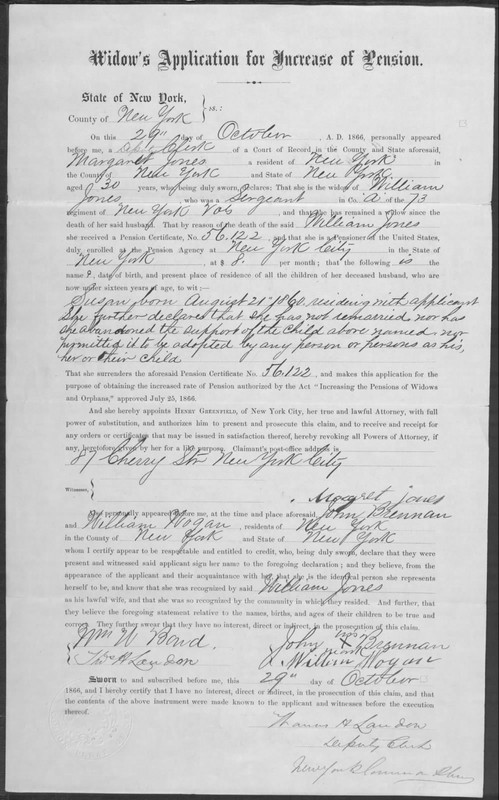 Widow's Application for Increase of Pension.
State of New York,
County of New York } ss.:
On this 29" day of October, A. D. 1866, personally appeared
before me, a Depty Clerk of a Court of Record in the County and State aforesaid,
Margaret Jones a resident of New York in
the County of New York and State of New York
aged 30 years, who being duly sworn, declares: That she is the widow of William
Jones, who was a Sergeant in Co. "A" of the 73
regiment of New York Vols, and that she has remained a widow since the
death of her said husband. That by reason of the death of the said William Jones
she received a Pension Certificate, No. 56.122, and that she is a Pensioner of the United States,
duly enrolled at the Pension Agency at New York City in the State of
New York, at $ 8. per month; that the following is the
name, date of birth, and present place of residence of all the children of her deceased husband, who are
now under sixteen years of age, to wit:—
Susan born August 21st 1860. residing with applicant
She further declares that she has not remarried nor has
she abandoned the support of the child above named, nor
permitted it to be adopted by any person or persons as his,
her or their child
That she surrenders the aforesaid Pension Certificate No. 56.122, and makes this application for the
purpose of obtaining the increased rate of Pension authorized by the Act "Increasing the Pensions of Widows
and Orphans," approved July 25, 1866.
And she hereby appoints HENRY GREENFIELD, of New York City, her true and lawful Attorney, with full
power of substitution, and authorizes him to present and prosecute this claim, and to receive and receipt for
any orders or certificates that may be issued in satisfaction thereof, hereby revoking all Powers of Attorney, if
any, heretofore given by her for a like purpose. Claimant's post-office address is
87 Cherry Str New York City
Witnesses,
Margret Jones
Also personally appeared before me, at the time and place aforesaid, John Brennan
and William Hogan, residents of New York
in the County of New York and State of New York
whom I certify to be respectable and entitled to credit, who, being duly sworn, declare that they were
present and witnessed said applicant sign her name to the foregoing declaration; and they believe, from the
appearance of the applicant and their acquaintance with her, that she is the identical person she represents
herself to be, and know that she was recognized by said William Jones
as his lawful wife, and that she was so recognized by the community in which they resided. And further, that
they believe the foregoing statement relative to the names, births, and ages of their children to be true and
correct. They further swear that they have no interest, direct or indirect, in the prosecution of this claim.
Wm W Bond. John his X mark Brennan
Thos A Landon William Hogan
SWORN to and subscribed before me, this 29" day of October
1866, and I hereby certify that I have no interest, direct or indirect, in the prosecution of this claim, and that
the contents of the above instrument were made known to the applicant and witnesses before the execution
thereof.
Thomas A Landon
Deputy Clerk
New York Common Pleas